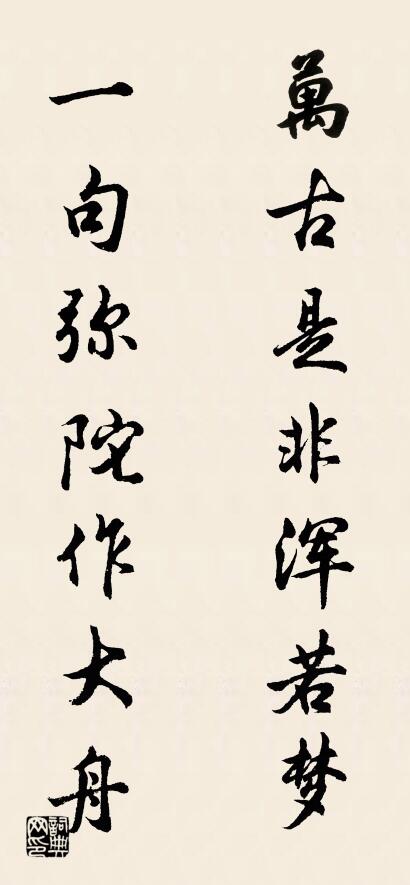 萬古是非浑若梦
一句弥陀作大舟